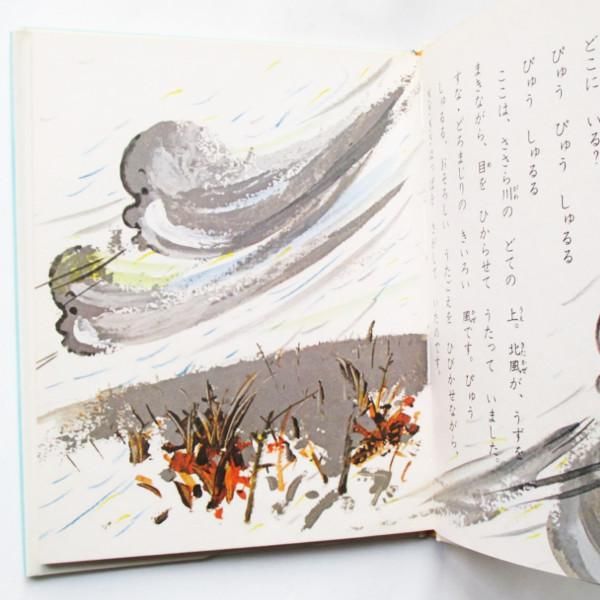 どこに いる?
びゅう びゅう しゅるる
びゅう しゅるる
ここは、ささら川の どての 上。北風が、うずを
まきながら、目を ひからせて うたって いました。
すな・どろまじりの きいろい 風です。びゅう
しゅるる、おそろしい うたごえを ひびかせながら、